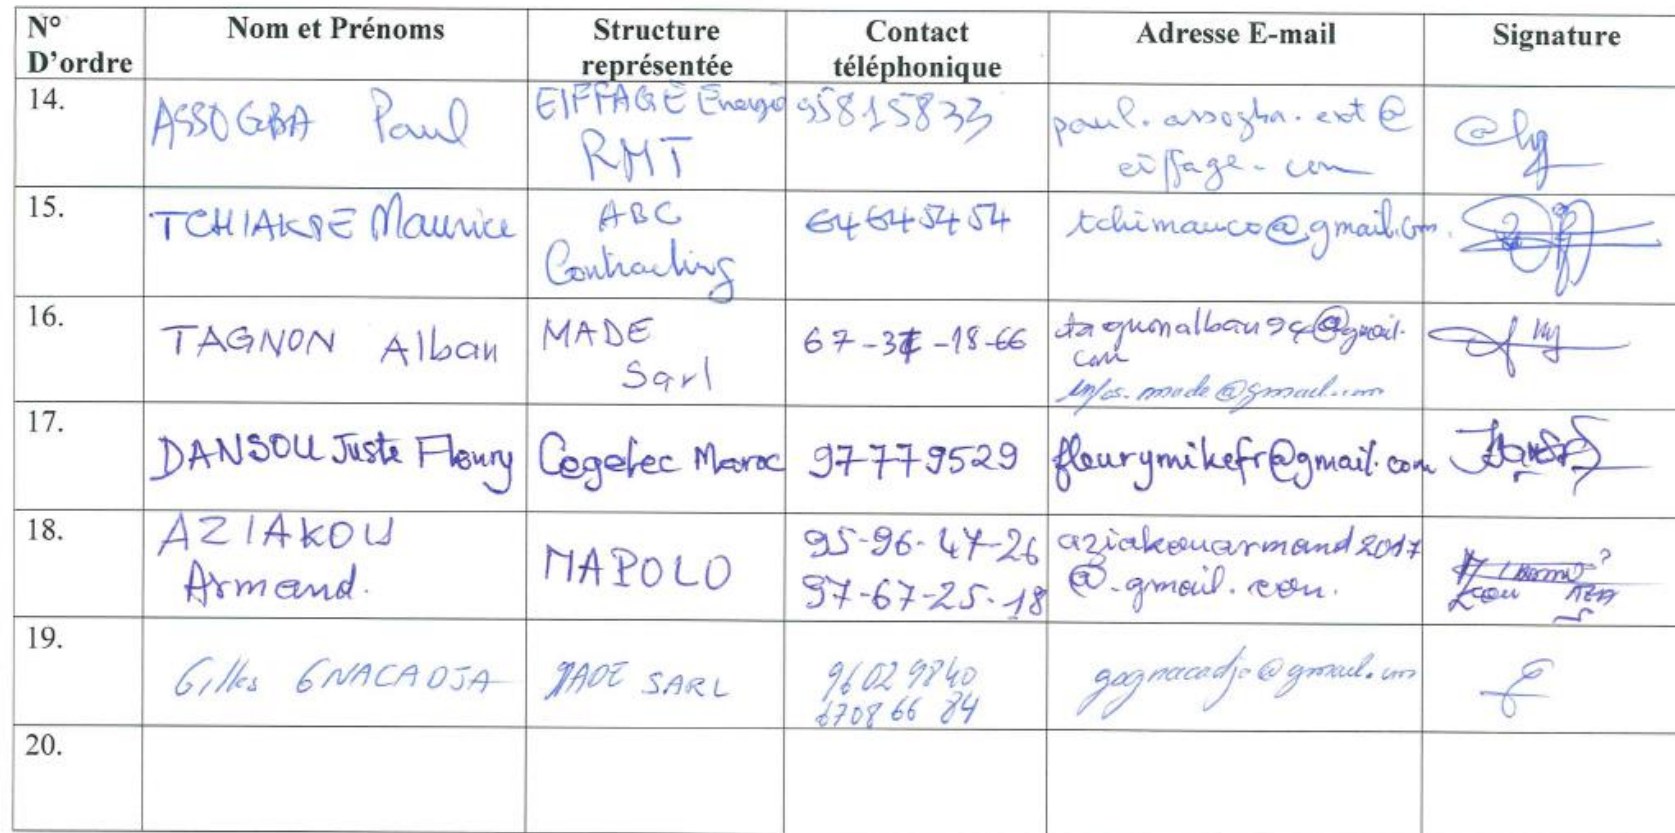 N° D'ordre Nom et Prénoms Structure représentée Contact téléphonique Adresse E-mail Signature
14. ASSOGBA Paul EIFFAGE Energie RMT 95815833 paul.assogba.ext@eiffage.com
15. TCHIAKPE Maurice ABC Contracting 64645454 tchimauco@gmail.com
16. TAGNON Alban MADE Sarl 67-37-18-66 tagnonalban94@gmail.com
infos.made@gmail.com
17. DANSOU Juste Fleury Cegelec Maroc 97779529 fleurymikefr@gmail.com
18. AZIAKOU Armand. MAPOLO 95-96-47-26 aziakouarmand2017
97-67-25-18 @.gmail.com.
19. Gilles GNACADJA MADE SARL 96029840 gognacadja@gmail.com
67086684
20.